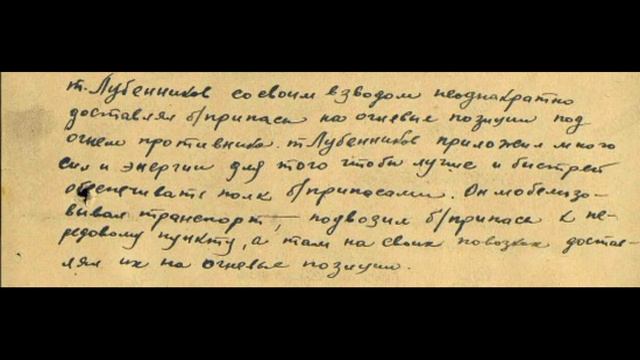 т. Лубенников со своим взводом неоднакратно
доставлял б/припасы на огневые позиции под
огнем противника. т Лубенников приложил много
сил и энергии для того чтобы лучше и быстрей
обеспечивать полк б/припасами. Он мобелизо-
вывал транспорт, – подвозил б/припасы к пе-
редовому пункту, а там на своих повозках достав-
лял их на огневые позиции.